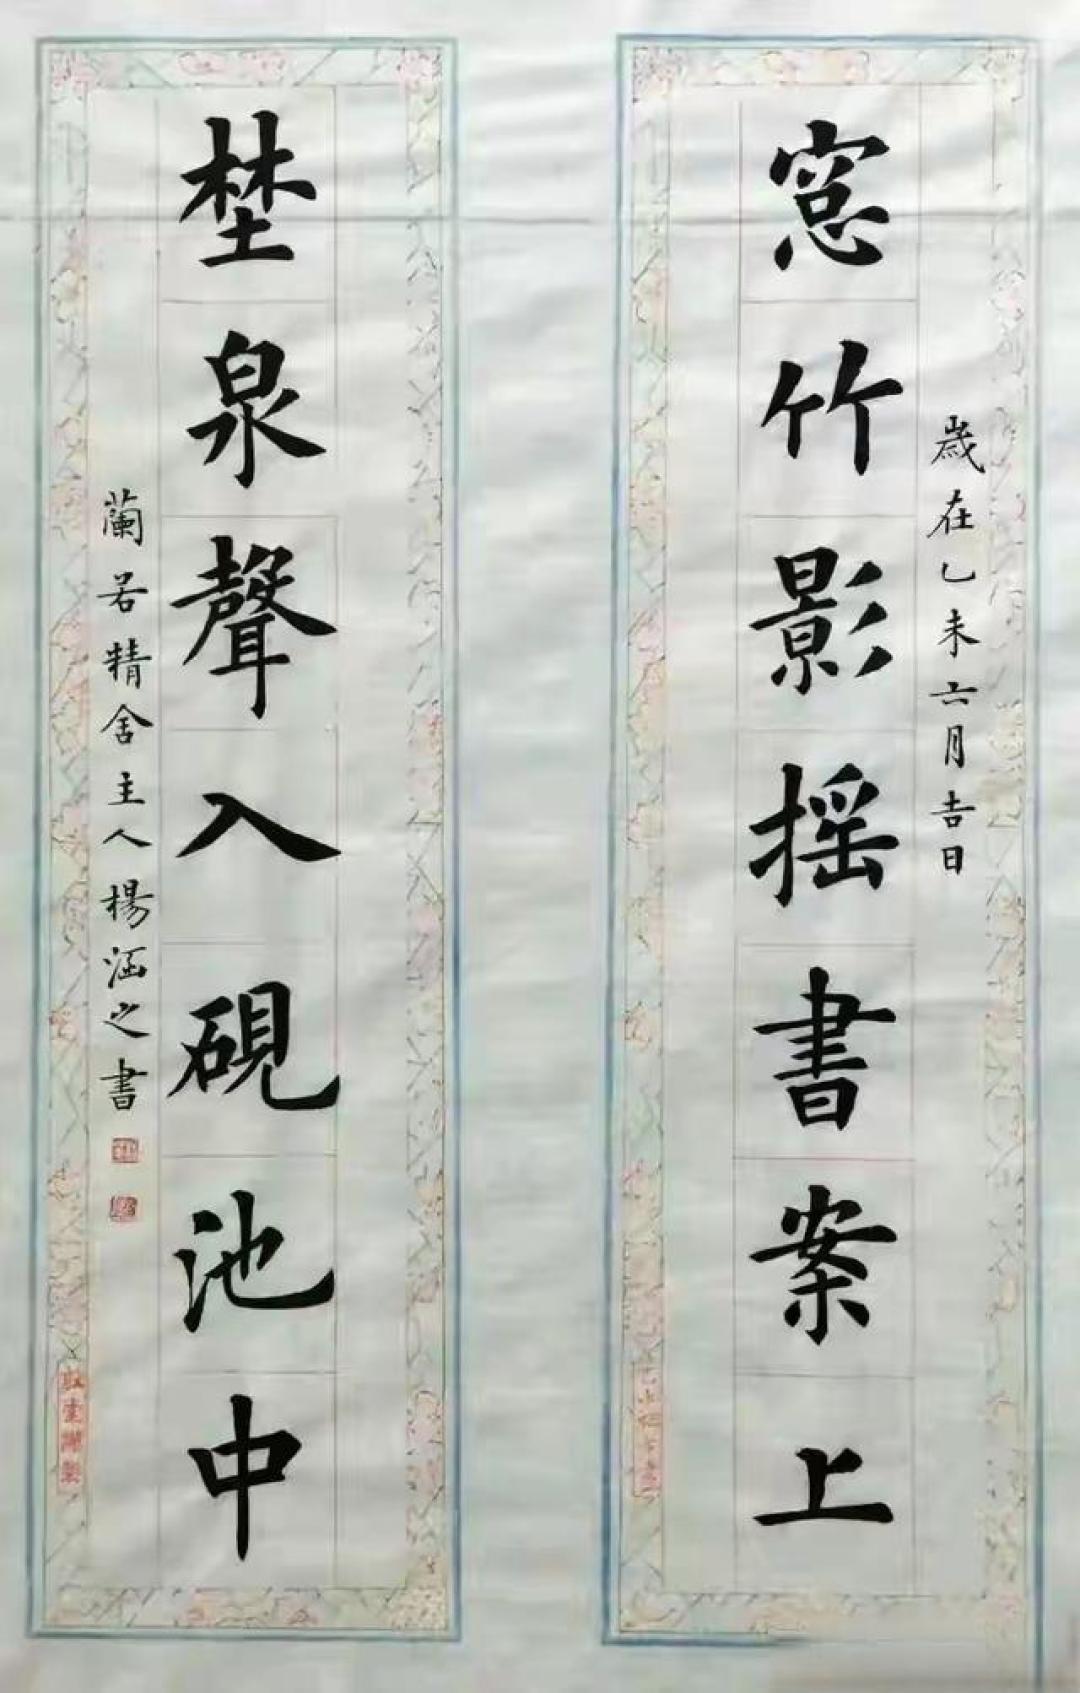 歲在乙未六月吉日
窓竹影摇書案上
埜泉聲入硯池中
蘭若精舍主人楊涵之書